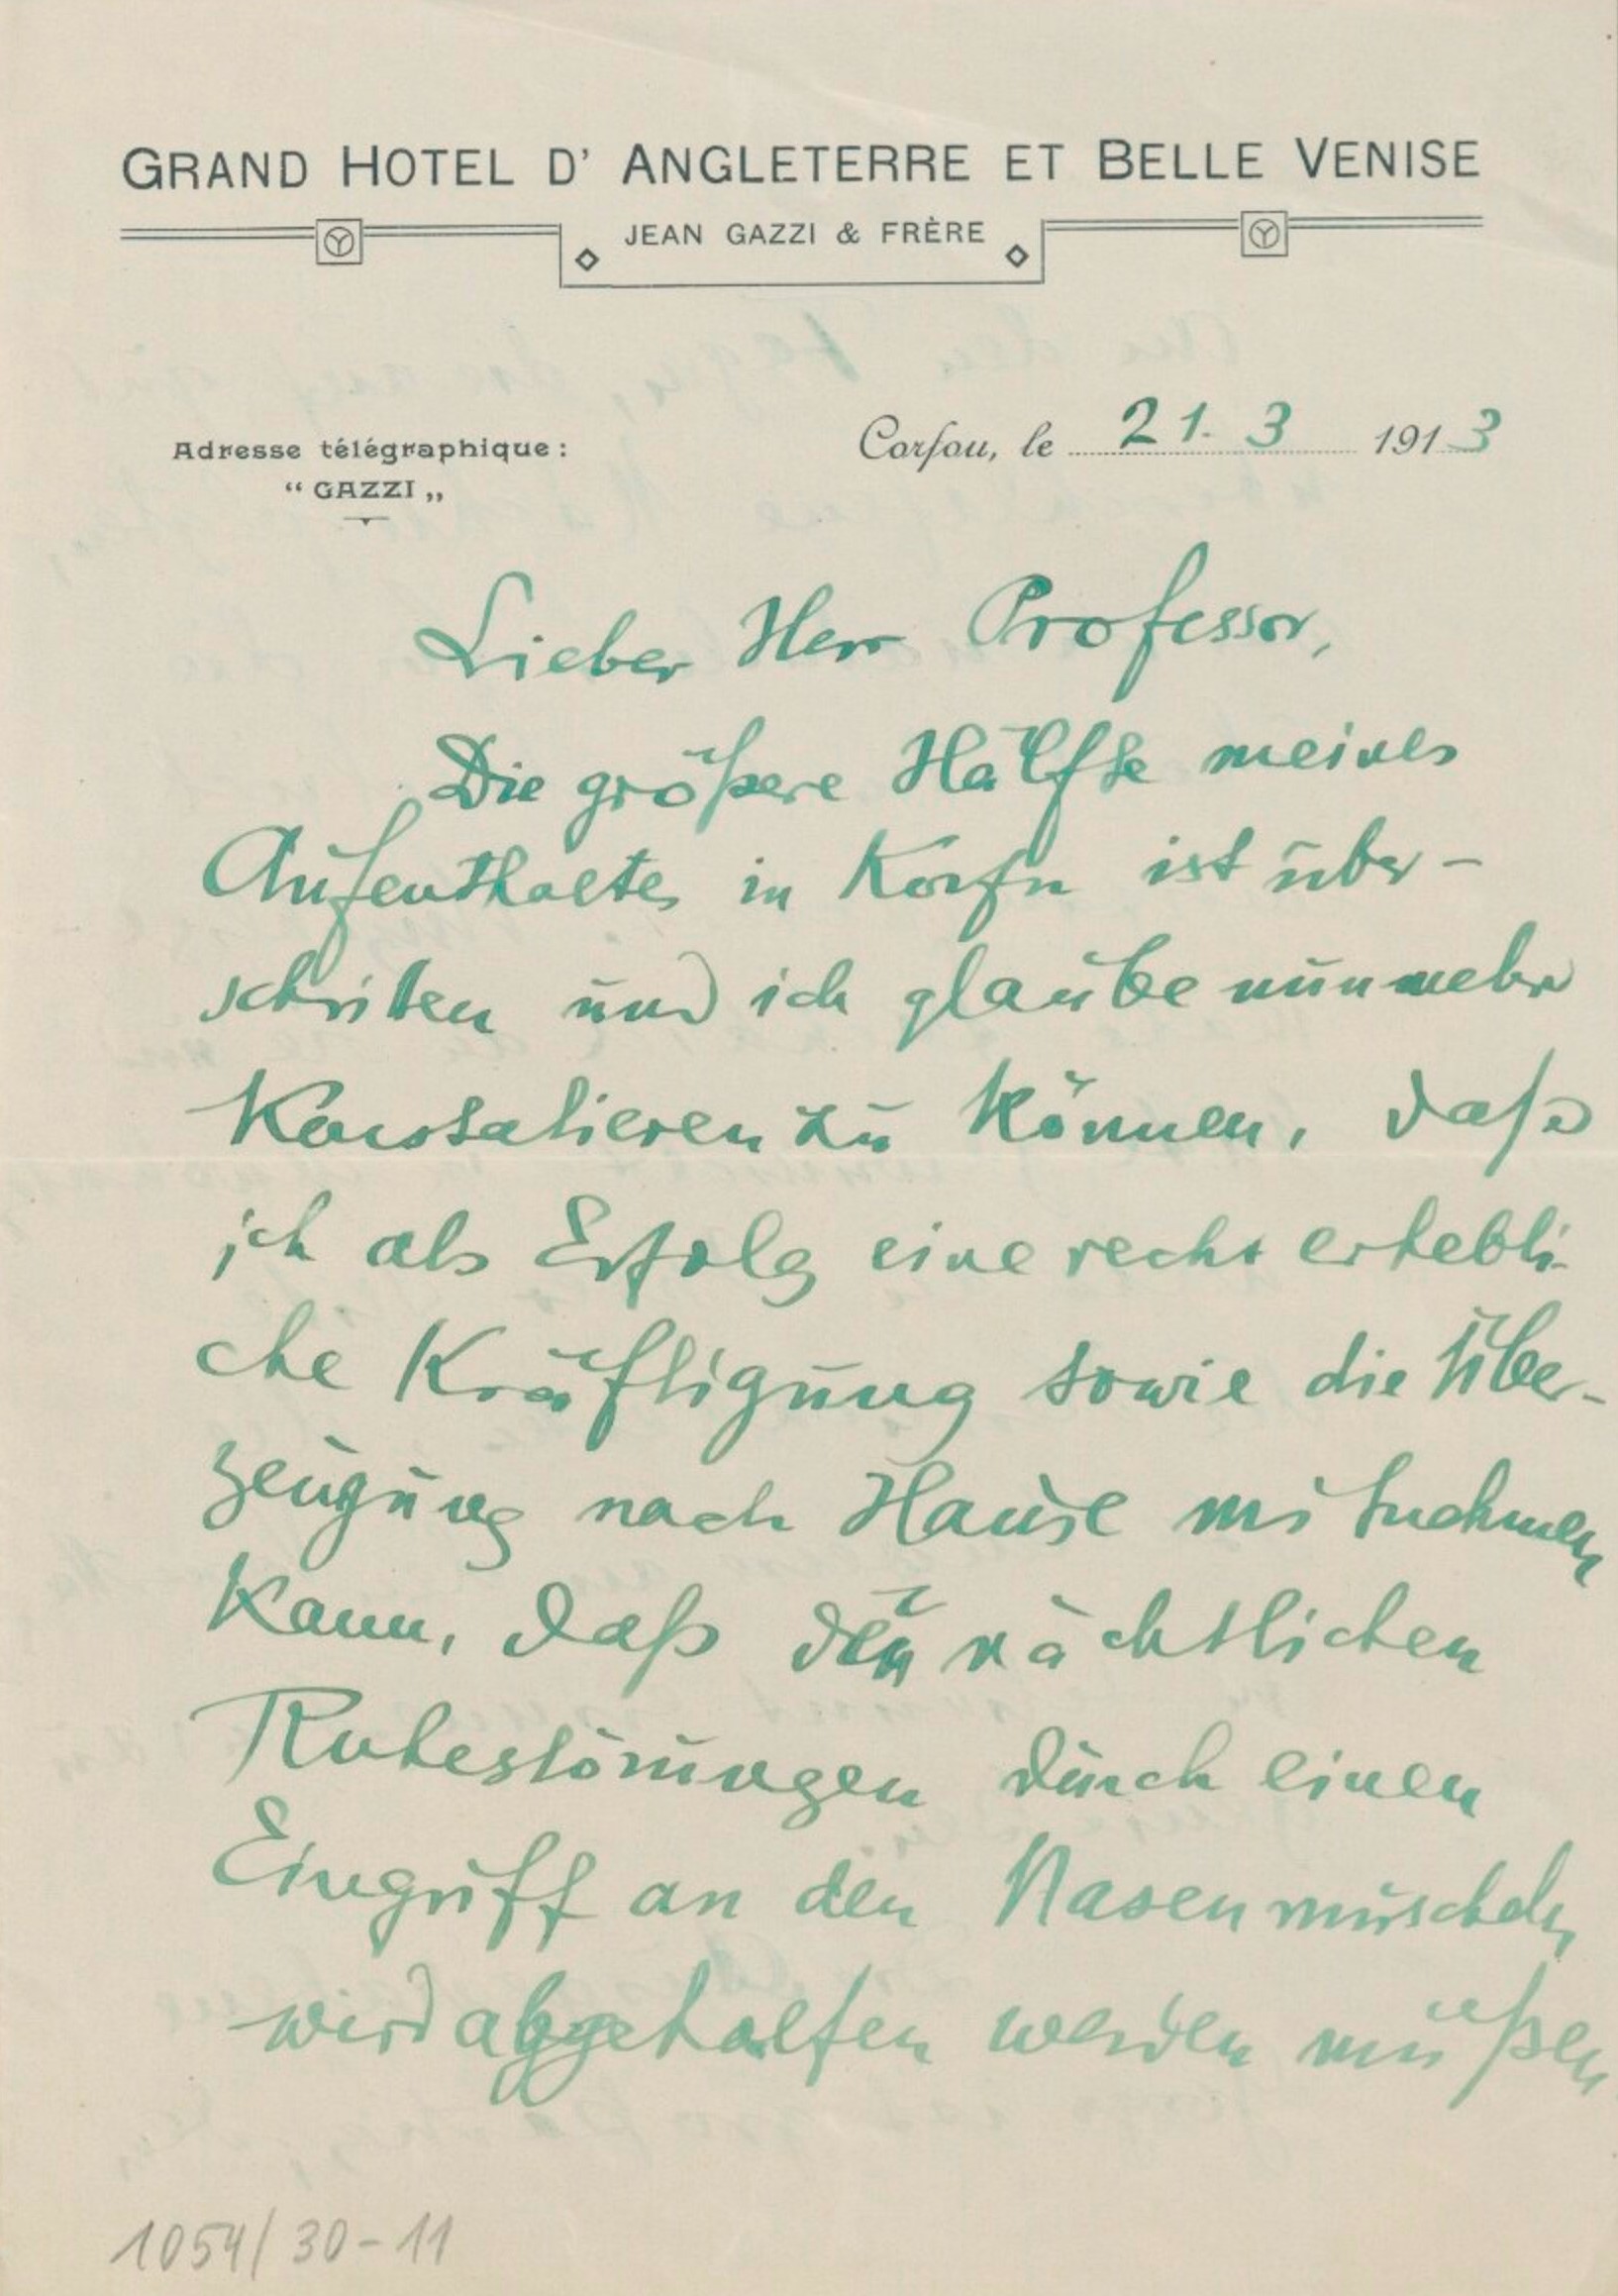 GRAND HOTEL D' ANGLETERRE ET BELLE VENISE
JEAN GAZZI & FRÈRE
Adresse télégraphique:
“ GAZZI „
Corfou, le 21. 3 1913
Lieber Herr Professor,
Die größere Hälfte meines
Aufenthaltes in Korfu ist über-
schritten und ich glaube nunmehr
Konstatieren zu können, daß
ich als Erfolg eine recht erhebli-
che Kräftigung sowie die Über-
zeugung nach Hause mitnehmen
kann, daß den nächtlichen
Ruhestörungen durch einen
Eingriff an den Nasenmuscheln
wird abgeholfen werden müßen
1054/30-11